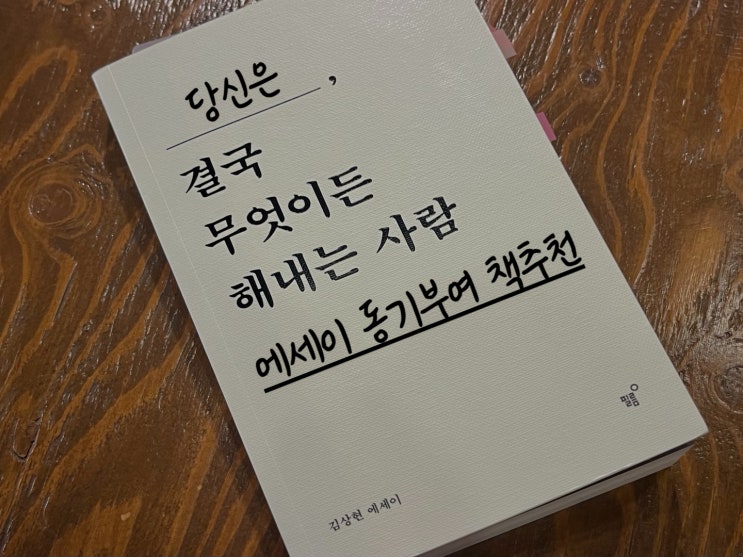 당신은 ,
결국
무엇이든
해내는 사람
에세이 동기부여 책추천
필름
김상현 에세이